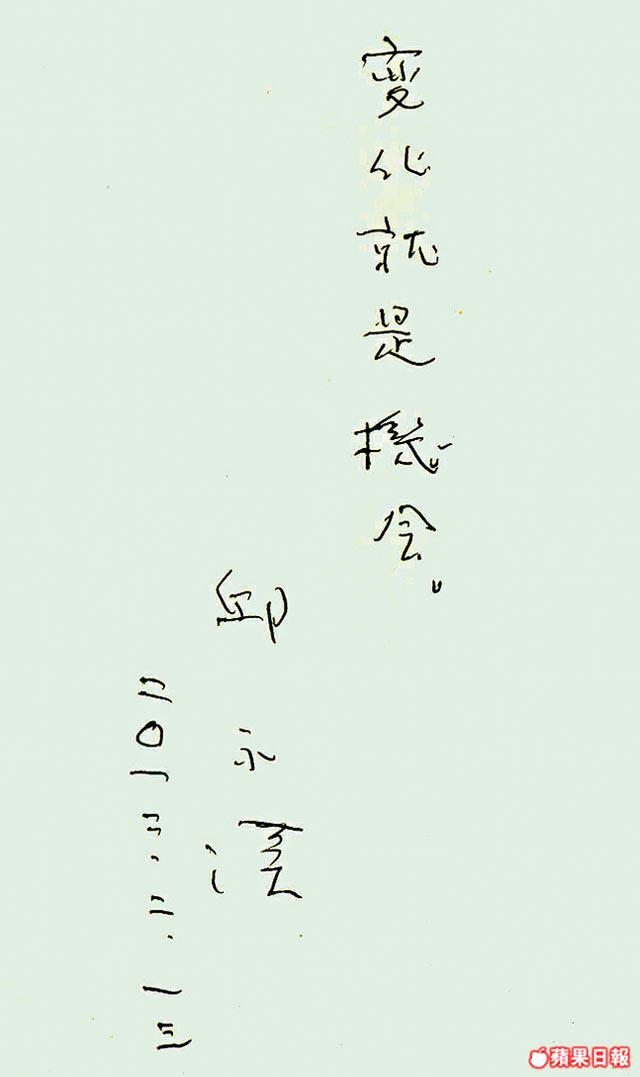 変化就是機会。
邱永漢
二〇一二.二.一三
蘋果日報